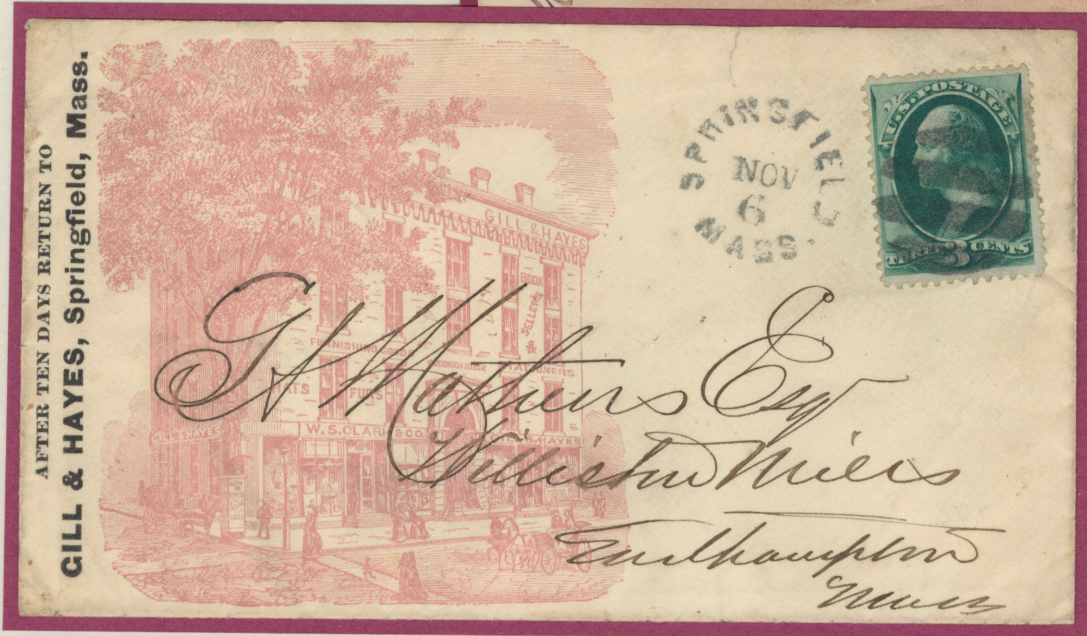 AFTER TEN DAYS RETURN TO
GILL & HAYES, Springfield, Mass.
GILL & HAYES
BOOK
SELLERS
&
STATIONERS
FURNISHING GOODS
HATS FURS
W. S. CLARK & CO.
GILL & HAYES
& HAYES
SPRINGFIELD
NOV
6
MASS.
U.S. POSTAGE
THREE 3 CENTS
G H Mathews Esq
Williston Mills
Easthampton
Mass